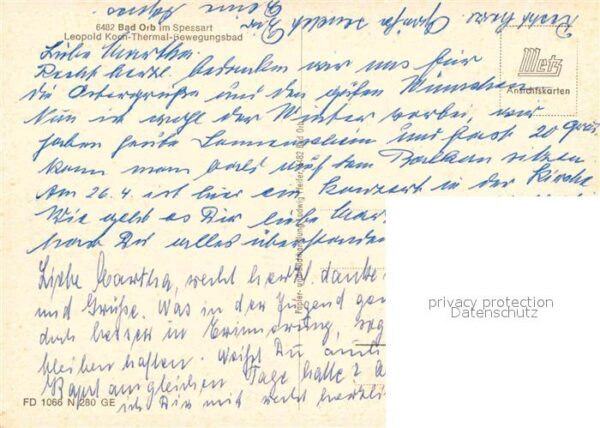 6482 Bad Orb im Spessart
Leopold Koch-Thermal-Bewegungsbad
Recht herzl. Grüße sendet Dir
Metz
Ansichtskarten
Liebe Martha.
Recht herzl. bedanken wir uns für
die Ostergrüße und den guten Wünschen
Nun ist wohl der Winter vorbei, wir
haben heute Sonnenschein und fast 20 Grad
kann man bald auf dem Balkon sitzen
Am 26.4. ist hier ein Konzert in der Kirche
Wie geht es Dir liebe Mar
hast Du alles überstanden
Liebe Martha, recht herzl. danke
und Grüße. Was in der Jugend
doch besser in Erinnerung,
bleiben haften. Weißt Du
ausgleichen Tage hatte
ich Dir mit recht herzli
privacy protection
Datenschutz
FD 1066 N 280 GE